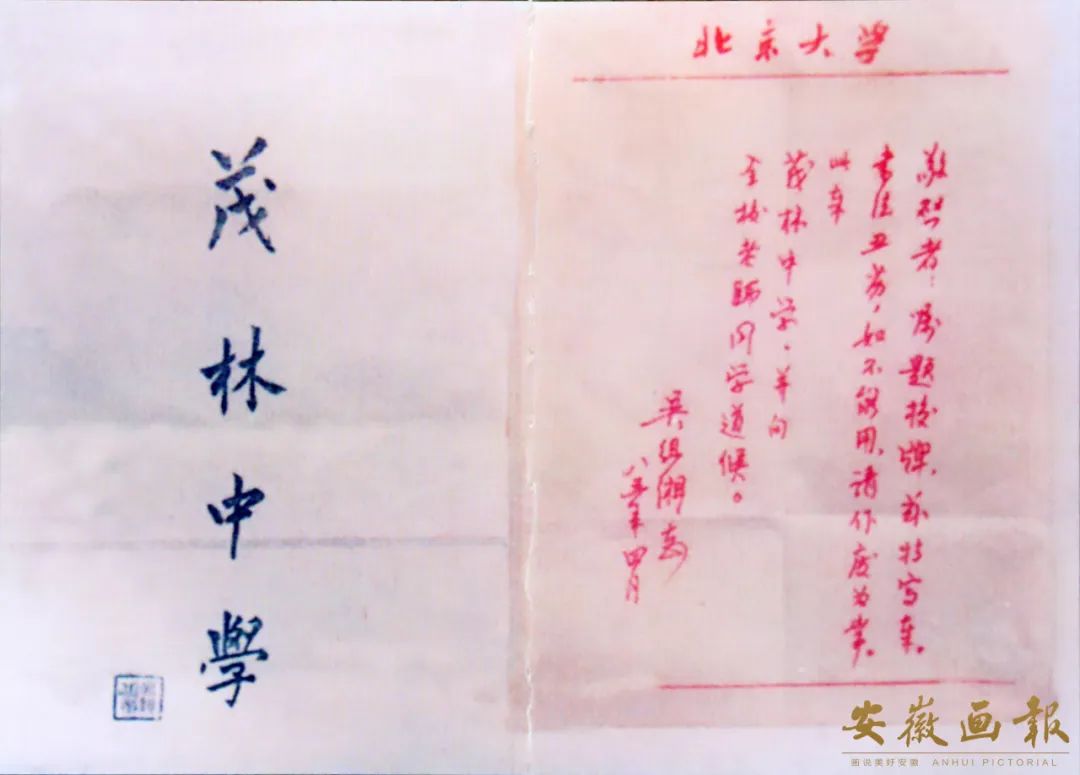 北京大学
敬启者:嘱题校牌,兹特写奉。
书法丑劣,如不能用,请作废为幸。
此奉
茂林中学,并向
全校老师同学道候。
吴组缃
八五年四月
茂
林
中
學
安徽画報
画说美好安徽 ANHUI PICTORIAL